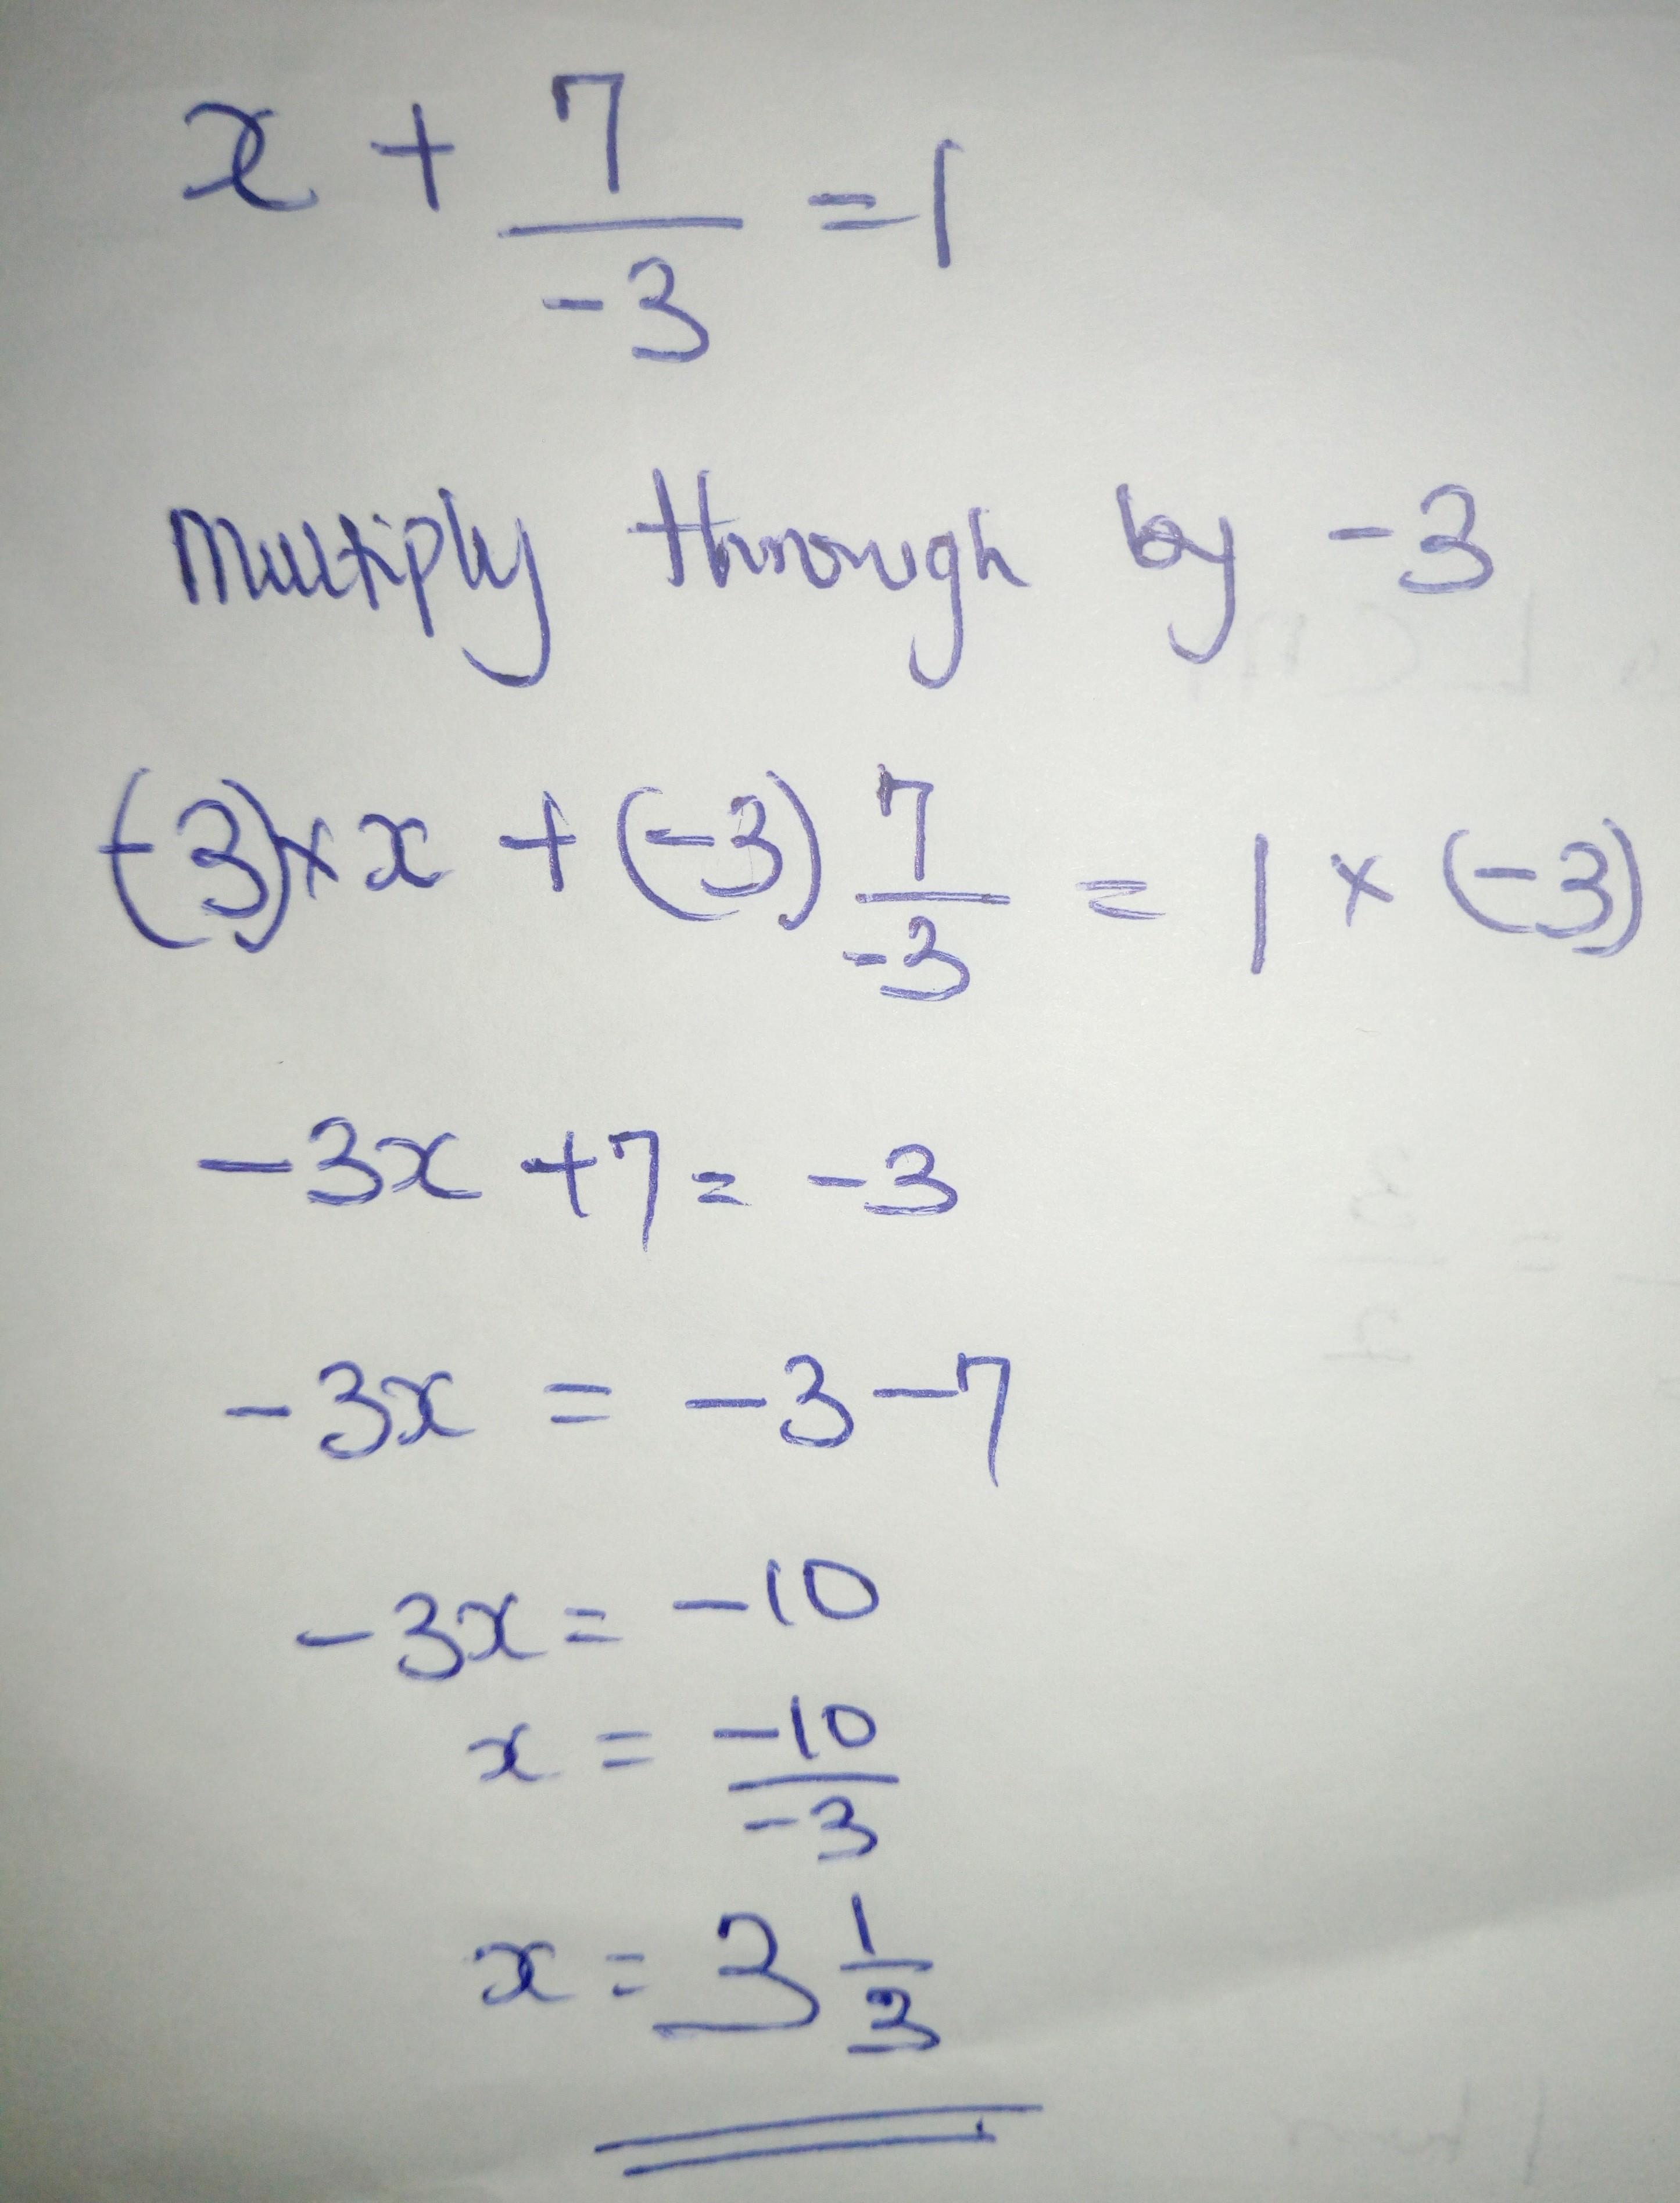 x + 7/-3 = 1
Multiply through by -3
(-3)×x + (-3) 7/-3 = 1 × (-3)
-3x +7 = -3
-3x = -3-7
-3x = -10
x = -10/-3
x = 3 1/3